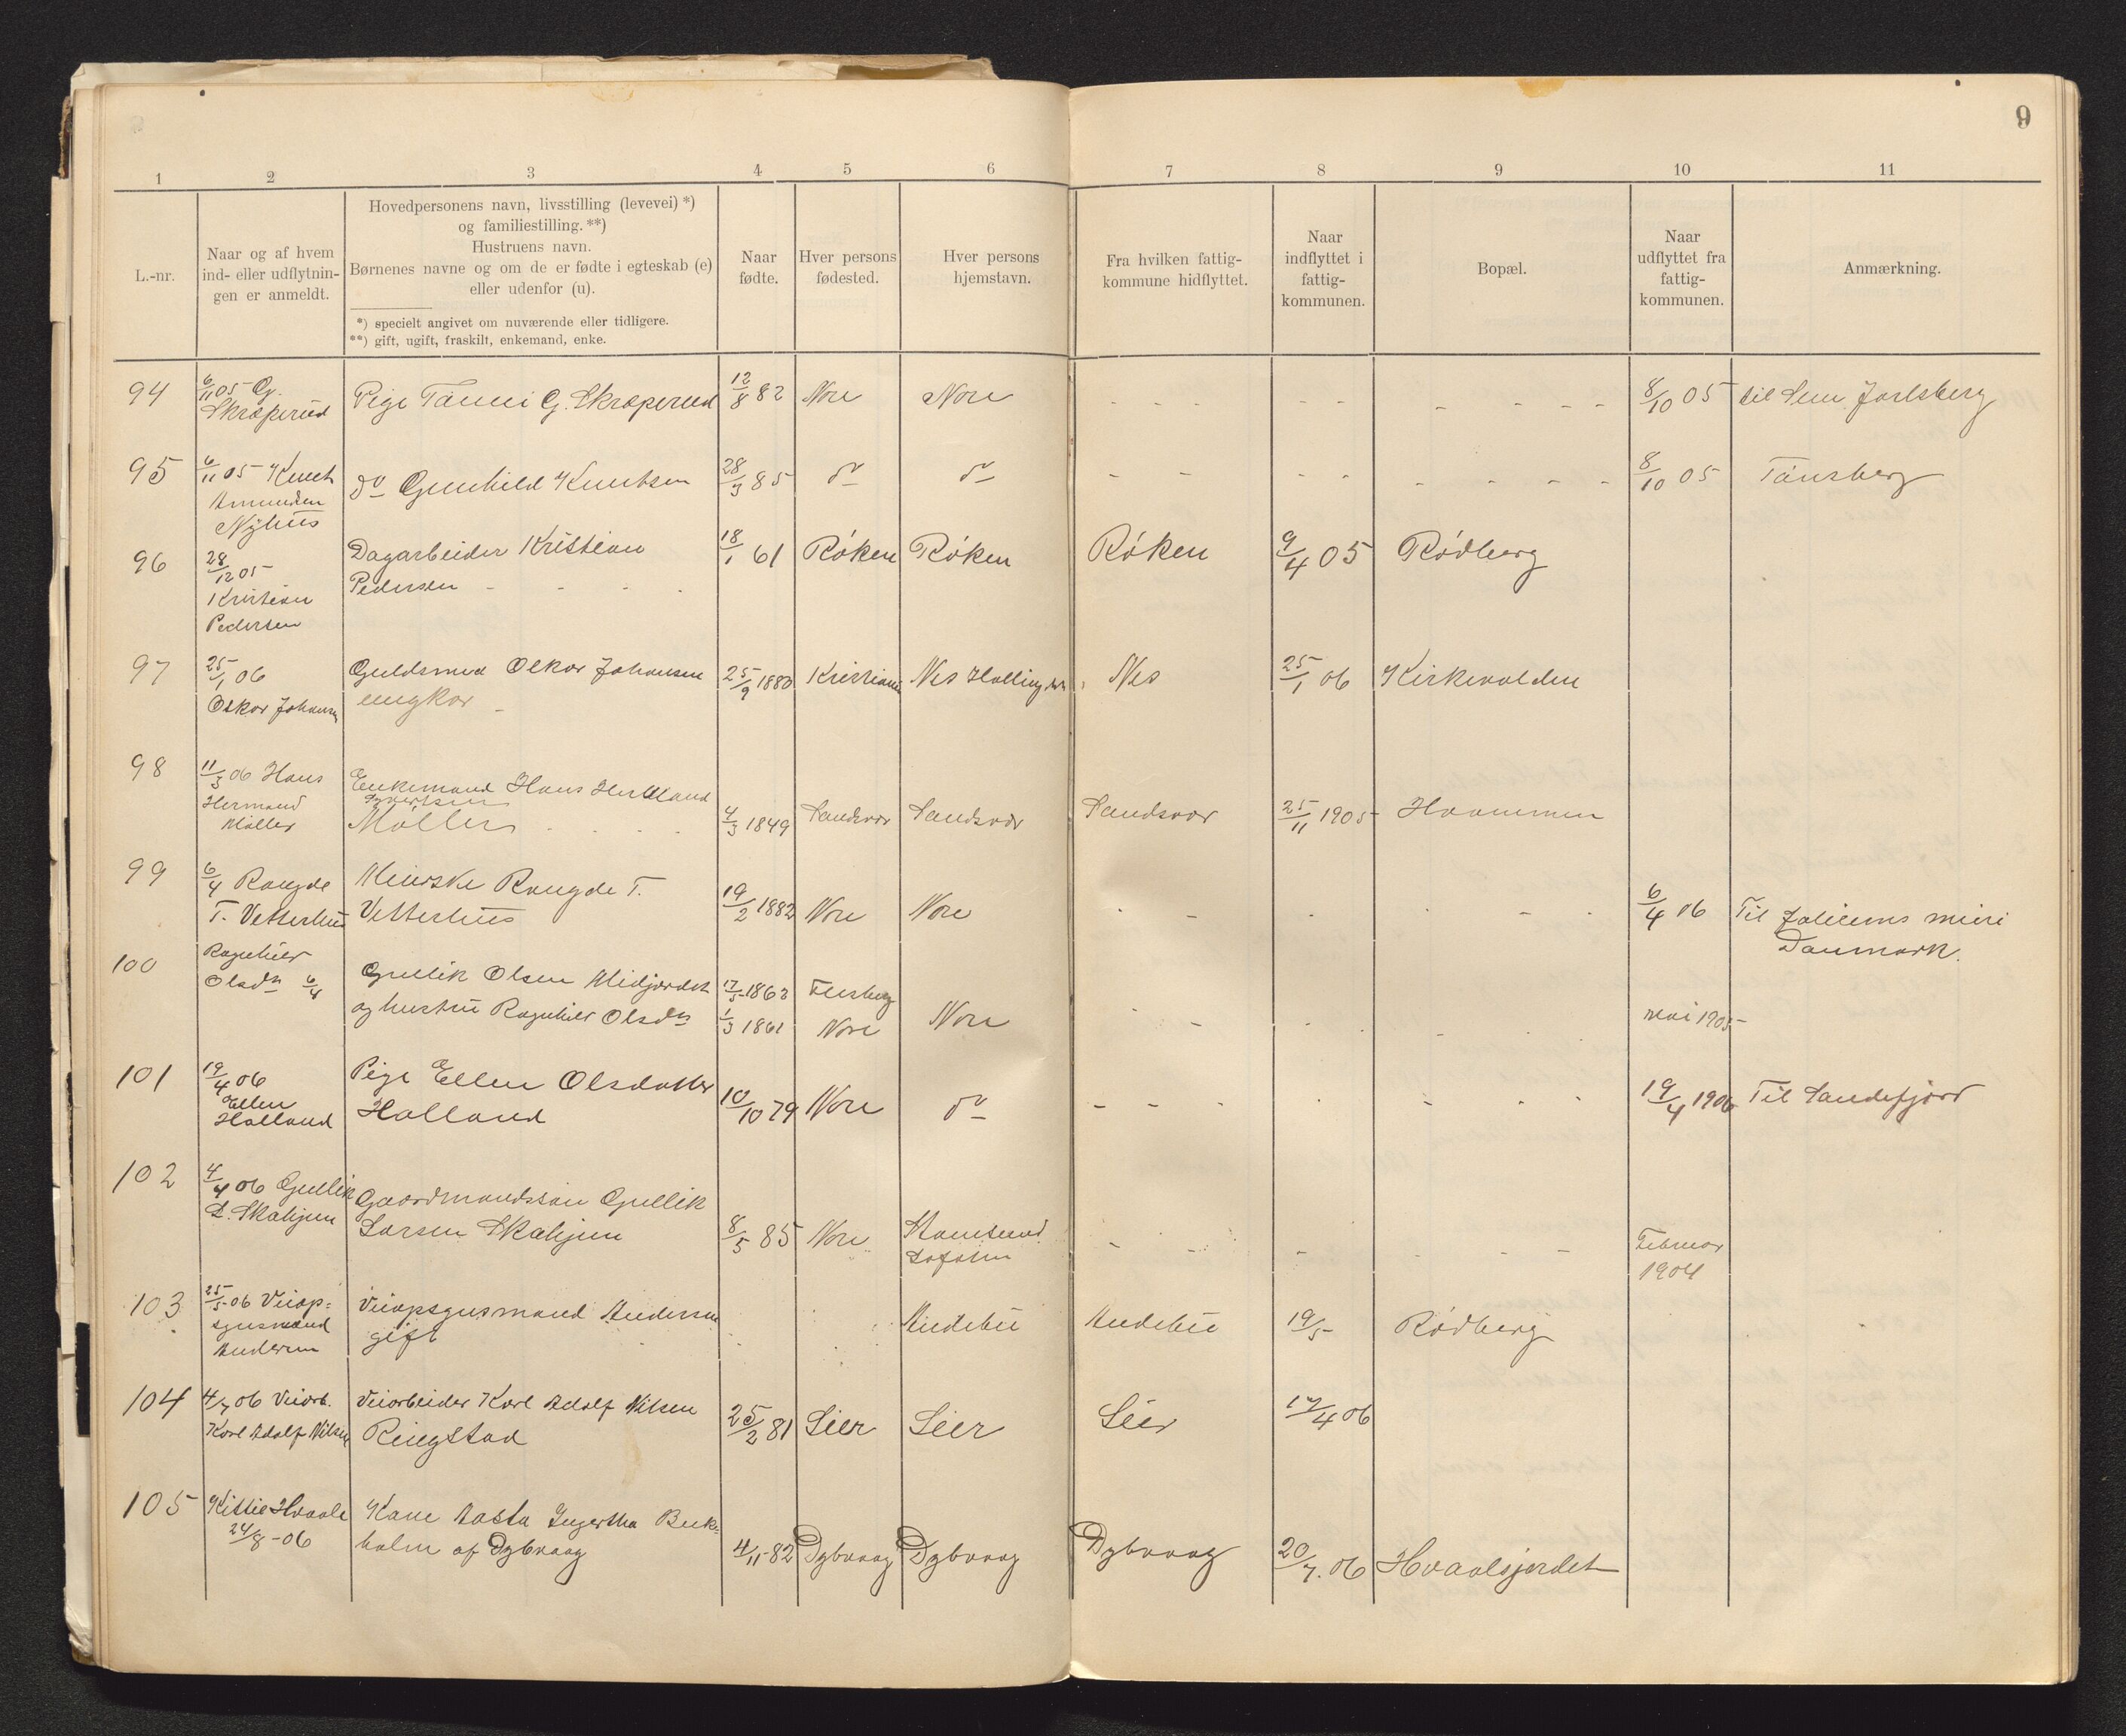 9
1 2 3 4 5 6 7 8 9 10 11
L.-nr.
Naar og af hvem
ind- eller udflytnin-
gen er anmeldt.
Hovedpersonens navn, livsstilling (levevei) *)
og familiestilling. **)
Hustruens navn.
Børnenes navne og om de er fødte i egteskab (e)
eller udenfor (u).
*) specielt angivet om nuværende eller tidligere.
**) gift, ugift, fraskilt, enkemand, enke.
Naar
fødte.
Hver persons
fødested.
Hver persons
hjemstavn.
Fra hvilken fattig-
kommune hidflyttet.
Naar
indflyttet i
fattig-
kommunen.
Bopæl.
Naar
udflyttet fra
fattig-
kommunen.
Anmærkning.
94 6/11 05 G. Pige G. Skraperud 12/8 82 Nore Nore - - - - - - - - - 8/10 05 til Sem Jarlsberg
Skraperud
95 6/11 05 Knut do Gunhild Knutsen 28/3 85 do do - - - - - - - - 8/10 05 Tønsberg
Amundsen
Nyhus
96 28/12 05 Dagarbeider Kristian 18/1 61 Røken Røken Røken 9/4 05 Rødberg
Kristian Pedersen - - - -
Pedersen
97 25/1 06 Guldsmed Oskar Johansen 25/9 1880 Kristiania Nes Hallingdal Nes 25/1 06 Kirkevolden
Oskar Johansen ungkar -
98 11/3 06 Hans Enkemand Hans Hermand
Hermand
Møller Møller - - - - 4/3 1849 Sandsvær Sandsvær Sandsvær 25/11 1905 Hvammen
99 6/4 Rangde Meierske Rangde T. 19/2 1882 Nore Nore - - - - - 6/4 06 Til meieri
T. Vetterhus Vetterhus Danmark.
100 Ragnhild
Olsdr 6/4 Gullik Olsen Midjordet 17/5 1863 Flesberg
og hustru Ragnhild Olsdr 1/3 1861 Nore Nore - - - - - mai 1905
101 19/4 06 Pige Ellen Olsdatter 10/10 79 Nore do - - - - - - - 19/4 1906 Til Sandefjord
Ellen Holland
Holland
102 4/4 06 Gullik Gaardmandssøn Gullik
L. Skahjem Larsen Skahjem 8/5 85 Nore Stamsund - - - - - - Februar
Lofoten 1904
103 25/5 06 Veiop= Veiopsynsmand Andersen Andebu Andebu 19/5 Rødberg
synsmand gift
Andersen
104 4/7 06 Veiarb. Veiarbeider Karl Adolf Nilsen 25/2 81 Lier Lier Lier 4 06
Karl Adolf Nilsen Ringstad
105 Kittil Hvaale Kone Aasta Ingertha Buk=
24/8 -06 holm af Dybvaag 4/11-82 Dybvaag Dybvaag Dybvaag 20/7. 06 Hvaalsjordet